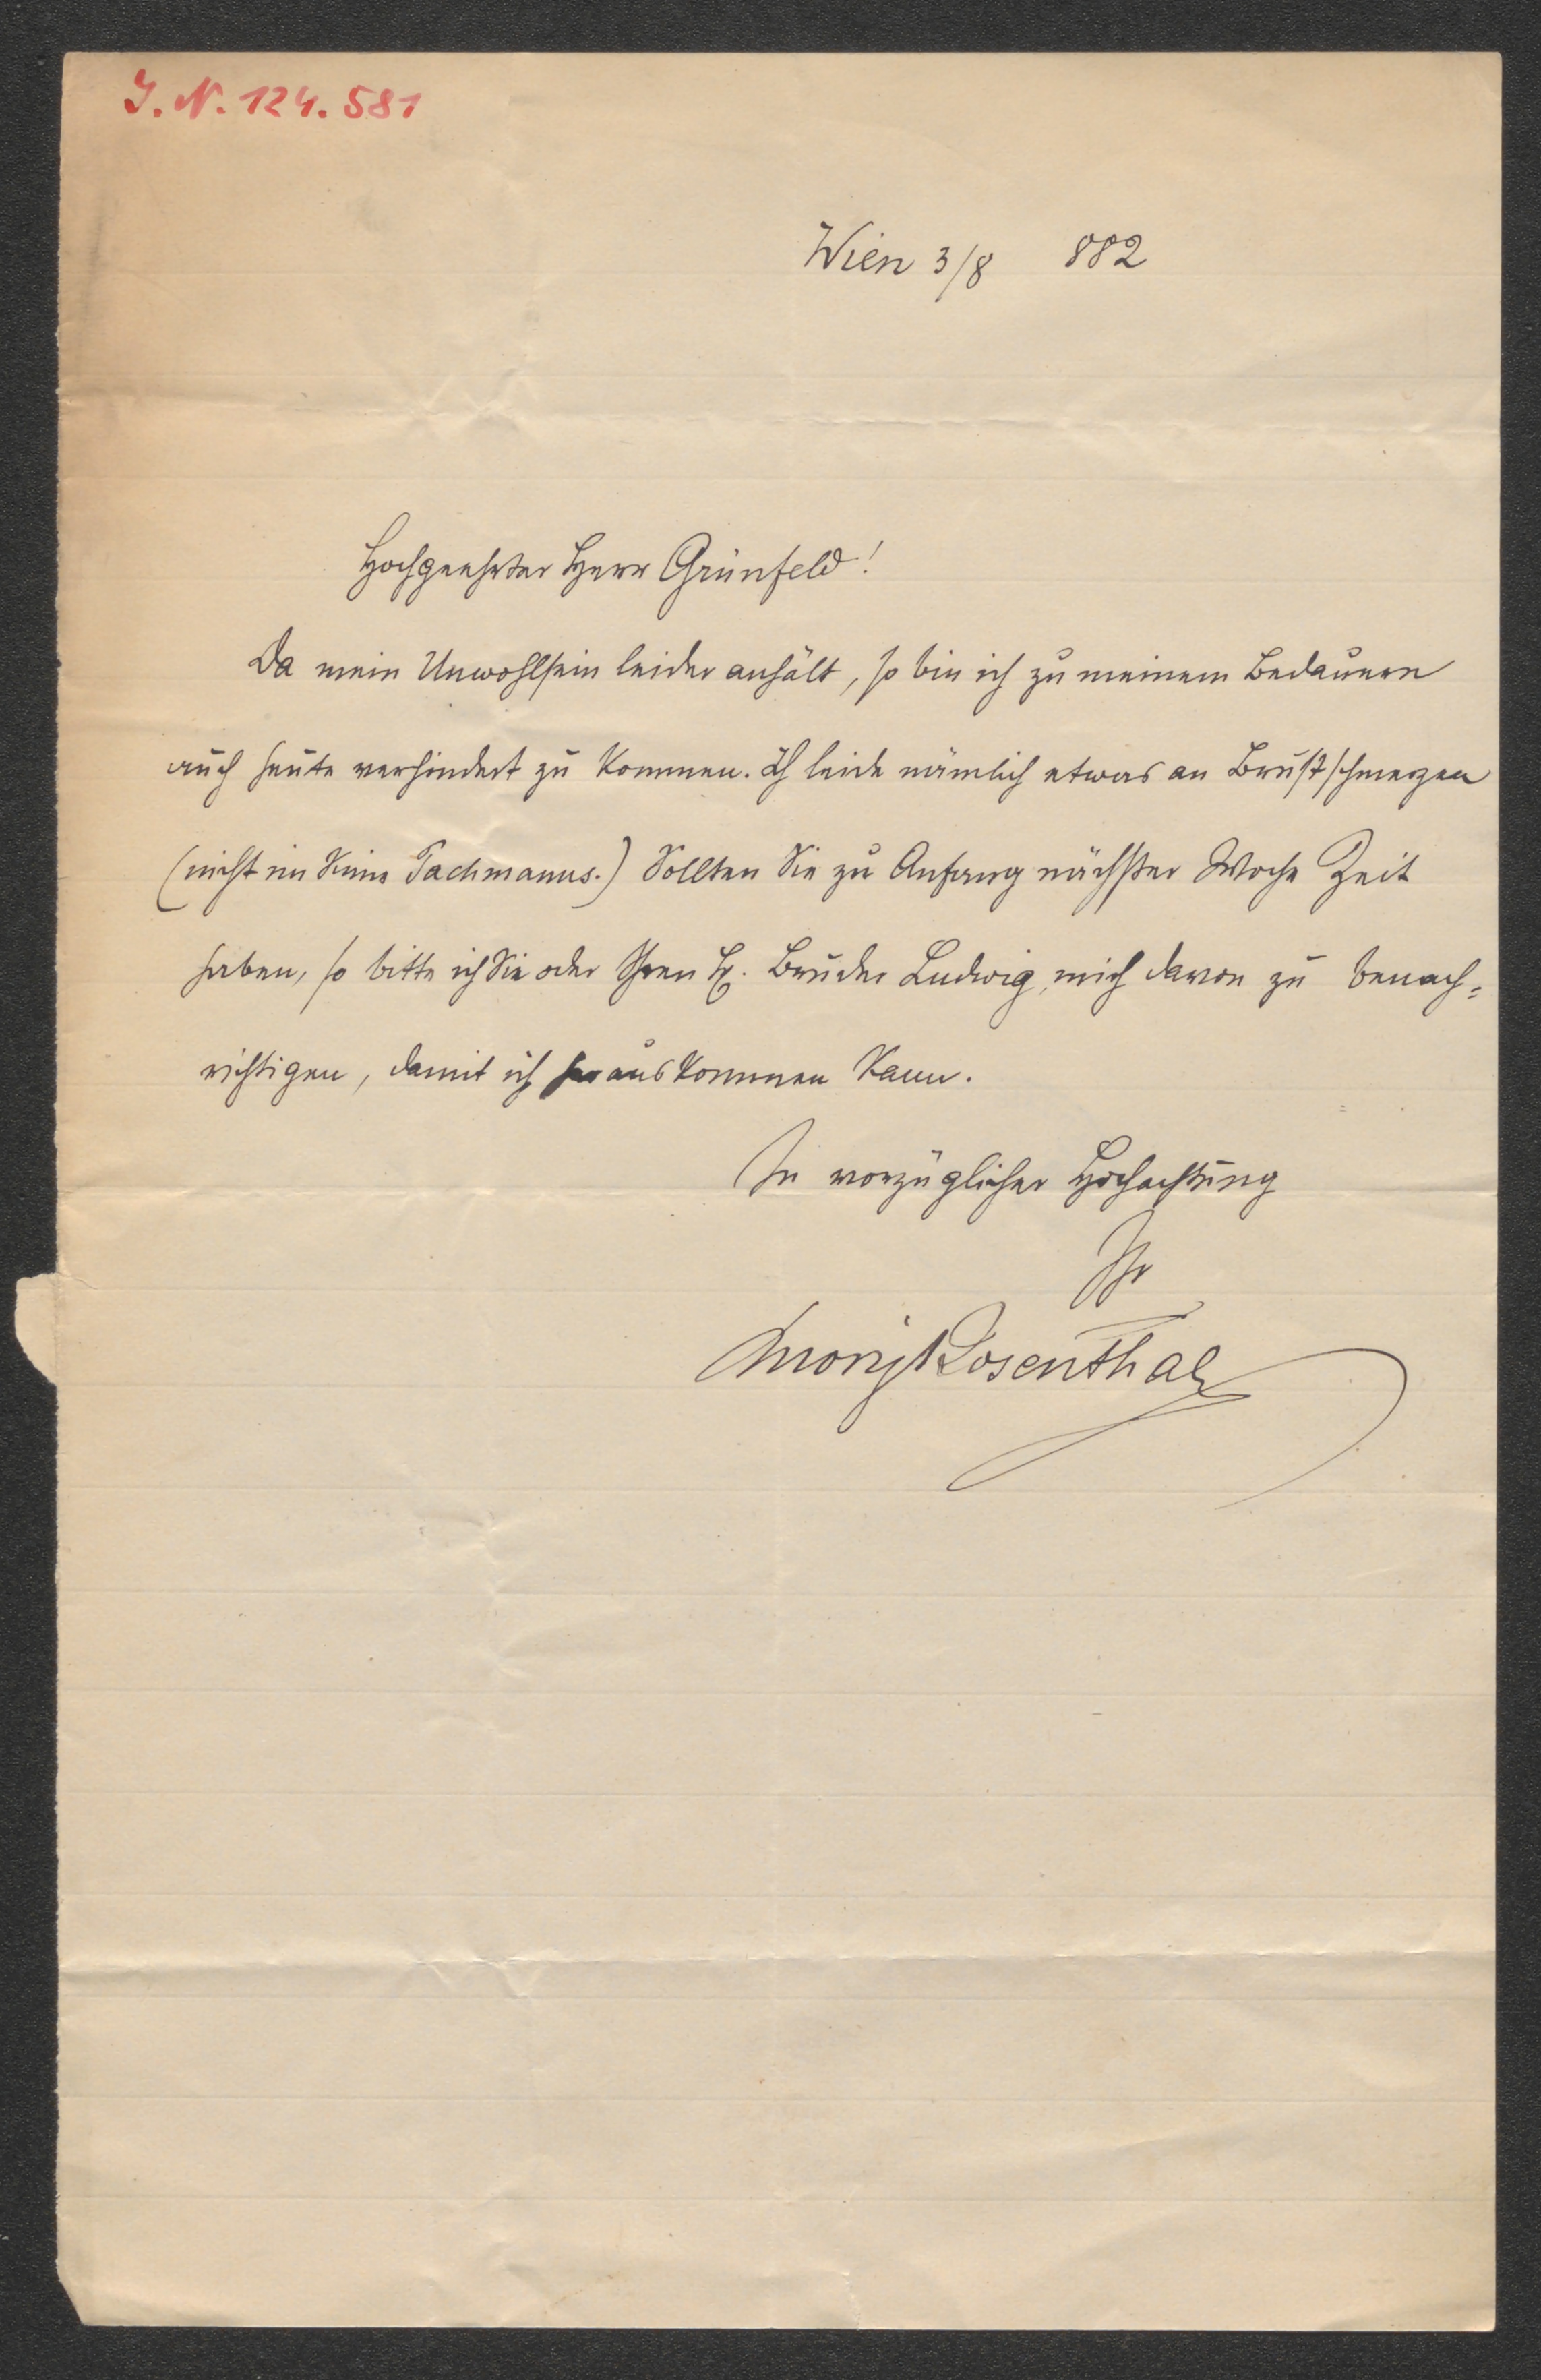 I. N. 124.581
Wien 3/8 882
Hochgeehrter Herr Grünfeld!
Da mein Unwohlsein leider anhält, so bin ich zu meinem Bedauern
auch heute verhindert zu kommen. Ich leide nämlich etwas an Brustschmerzen
(nicht im Sinne Pachmanns.) Sollten Sie zu Anfang nächster Woche Zeit
haben, so bitte ich Sie oder Ihren Hr. Bruder Ludwig, mich davon zu benach=
richtigen, damit ich herauskommen kann.
In vorzüglicher Hochachtung
Ihr
Moriz Rosenthal